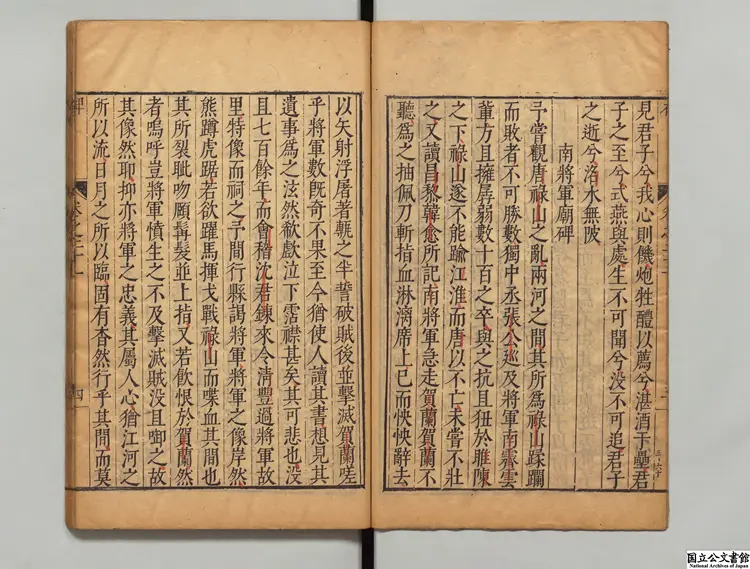 見君子兮我心則饑炮牲醴以薦兮湛酒于罍君
子之至兮式燕與處生不可聞兮没不可追君子
之逝兮洛水無陂
南將軍廟碑
予嘗觀唐祿山之亂兩河之間其所爲祿山蹂躪
而敗者不可勝數獨中丞張公廵及將軍南霽雲
董方且擁孱弱數十百之卒與之抗且狃於睢陳
之下祿山遂不能踰江淮而唐以不亡未嘗不壯
之又讀昌黎韓愈所記南將軍急走賀蘭賀蘭不
聽爲之抽佩刀斬指血淋漓席上已而怏怏辭去
以矢射浮屠著輒之半誓破賊後並擊滅賀蘭嗟
乎將軍數旣奇不果至今猶使人讀其書想見其
遺事爲之泫然欷歔泣下霑襟甚矣其可悲也没
且七百餘年而會稽沈君鍊來令清豐過將軍故
里特像而祠之予間行縣謁將軍將軍之像岸然
熊蹲虎踞若欲躍馬揮戈戰祿山而喋血其間也
其所裂眦吻頤髯髮並上指又若飲恨於賀蘭然
者嗚呼豈將軍憤生之不及擊滅賊没且啣之故
其像然耶抑亦將軍之忠義其屬人心猶江河之
所以流日月之所以臨固有杳然行乎其間而莫
碑
卷之二十一
四
国立公文書館
National Archives of Japan